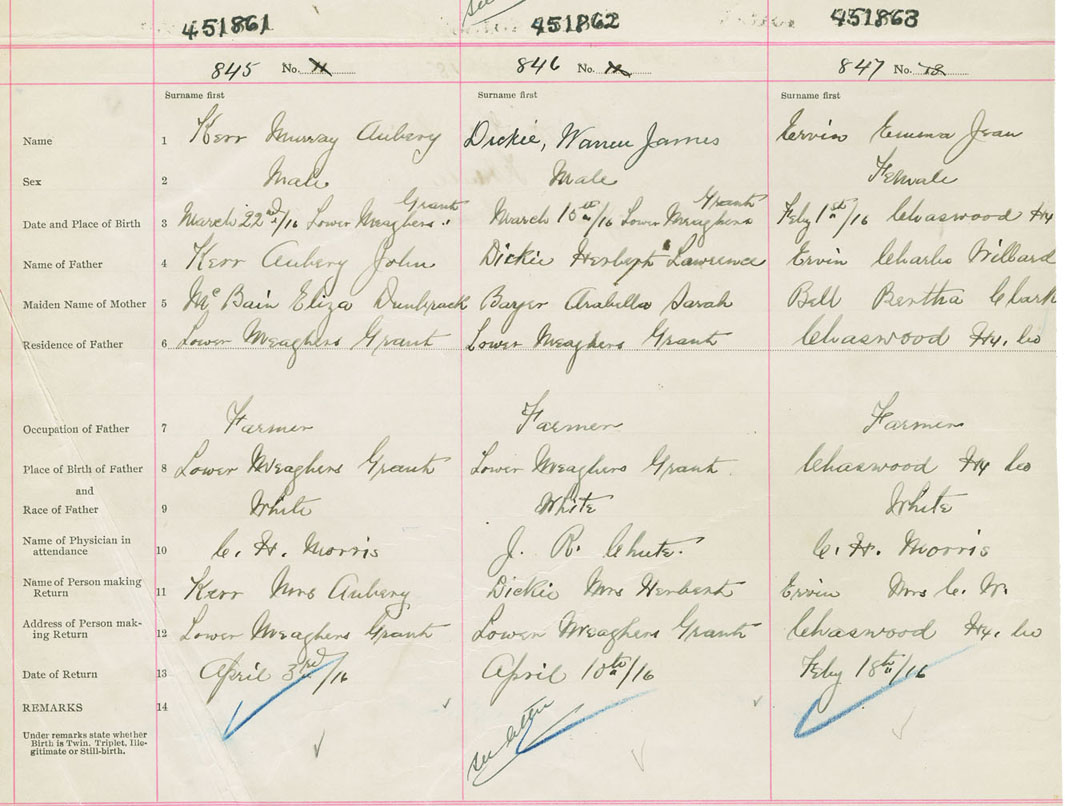 451861 451862 451863
845 No. 11 846 No. 12 847 No. 13
Surname first Surname first Surname first
Name 1 Kerr Murray Aubery Dickie, Warren James Ervin Emma Jean
Sex 2 Male Male Female
Grant Grant
Date and Place of Birth 3 March 22nd/16 Lower Meaghers March 15th/16 Lower Meaghers Feby 1st/16 Chaswood Hx
Name of Father 4 Kerr Aubery John Dickie Herbert Lawrence Ervin Charles Willard
Maiden Name of Mother 5 McBain Eliza Dunbrack Bayer Arabella Sarah Bell Bertha Clark
Residence of Father 6 Lower Meaghers Grant Lower Meaghers Grant Chaswood Hx. Co
Occupation of Father 7 Farmer Farmer Farmer
Place of Birth of Father 8 Lower Meaghers Grant Lower Meaghers Grant Chaswood Hx Co
and
Race of Father 9 White White White
Name of Physician in
attendance 10 C. H. Morris J. R. Chute. C. H. Morris
Name of Person making
Return 11 Kerr Mrs Aubery Dickie Mrs Herbert Ervin Mrs C. W.
Address of Person mak-
ing Return 12 Lower Meaghers Grant Lower Meaghers Grant Chaswood Hx. Co
Date of Return 13 April 3rd/16 April 10th/16 Feby 18th/16
REMARKS 14
see letter
Under remarks state whether
Birth is Twin. Triplet, Ille-
gitimate or Still-birth.